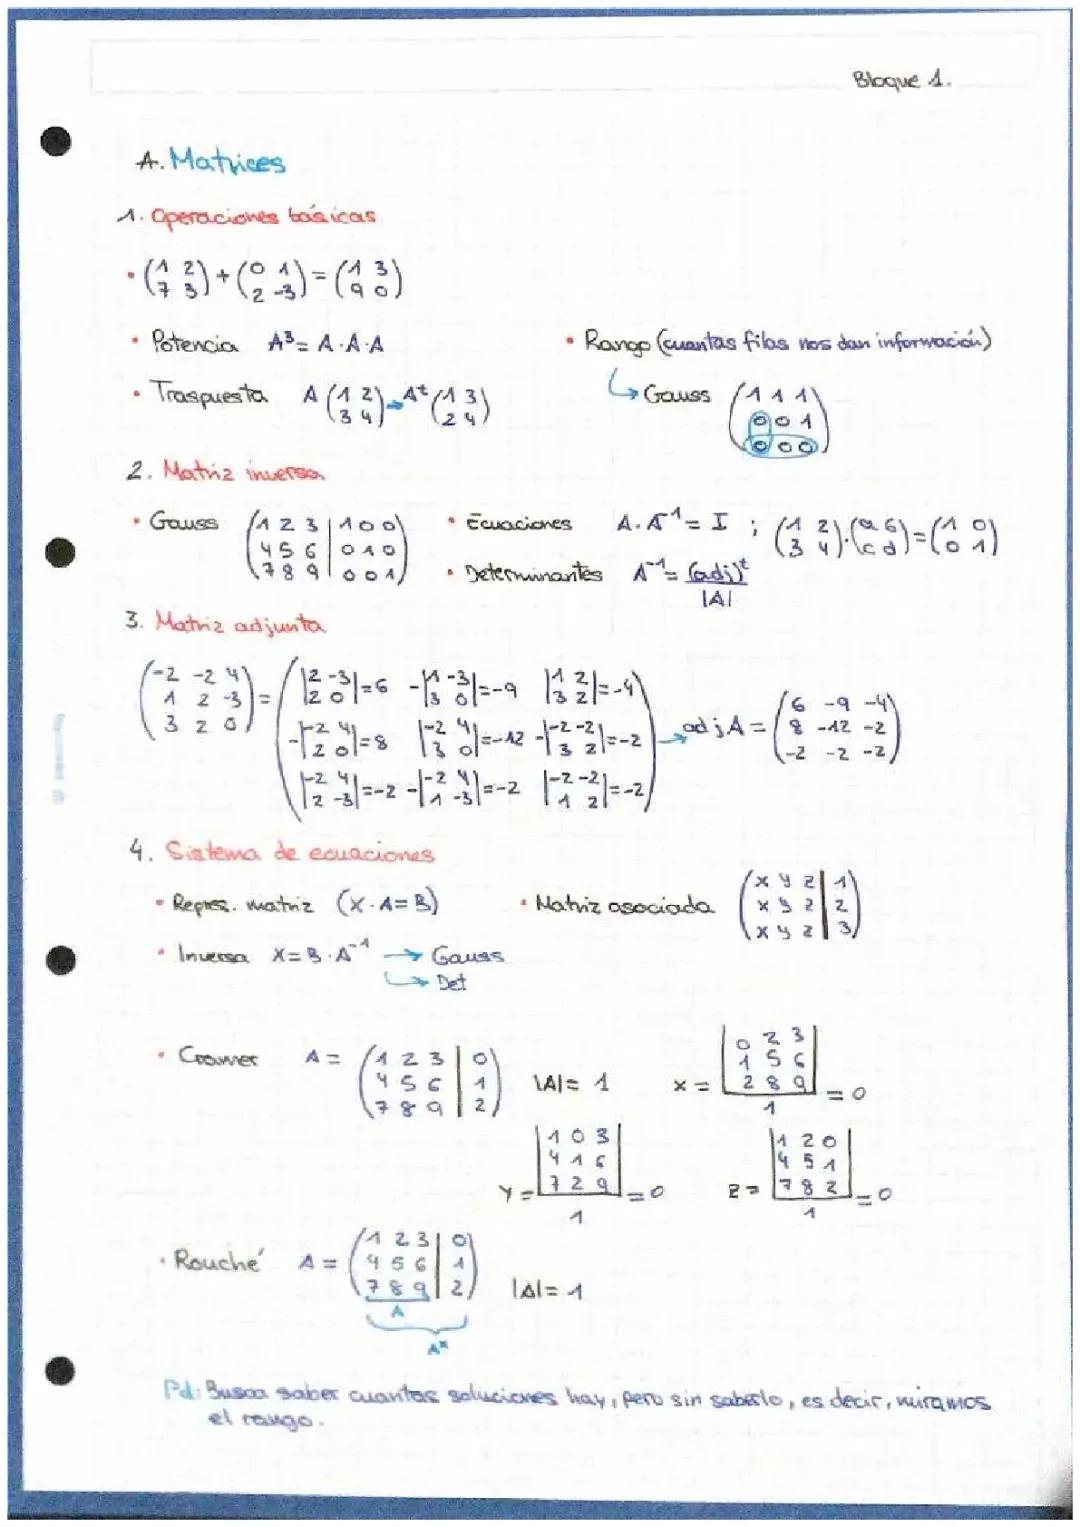 Bloque 1.
A. Matrices
1. Operaciones básicas
• (1 2 / 7 3) + (0 1 / 2 -3) = (1 3 / 9 0)
• Potencia A³ = A·A·A
• Rango (cuantas filas nos dan información)
• Traspuesta A (1 2 / 3 4) → Aᵗ (1 3 / 2 4)
↳ Gauss (1 1 1 / 0 0 1 / 0 0 0)
2. Matriz inversa
• Gauss (1 2 3 | 1 0 0 / 4 5 6 | 0 1 0 / 7 8 9 | 0 0 1)
• Ecuaciones A·A⁻¹ = I ; (1 2 / 3 4)·(a b / c d) = (1 0 / 0 1)
• Determinantes A⁻¹ = (adj)ᵗ / |A|
3. Matriz adjunta
(-2 -2 4 / 1 2 -3 / 3 2 0) =
|2 -3 / 2 0| = 6 -|1 -3 / 3 0| = -9 |1 2 / 3 2| = -4
-|-2 4 / 2 0| = 8 |-2 4 / 3 0| = -12 -|-2 -2 / 3 2| = -2
|-2 4 / 2 -3| = -2 -|-2 4 / 1 -3| = -2 |-2 -2 / 1 2| = -2
→ adj A = (6 -9 -4 / 8 -12 -2 / -2 -2 -2)
4. Sistema de ecuaciones
• Repres. matriz (X·A = B)
• Matriz asociada (x y z | 1 / x y z | 2 / x y z | 3)
• Inversa X = B·A⁻¹ → Gauss
↳ Det
• Cramer A = (1 2 3 | 0 / 4 5 6 | 1 / 7 8 9 | 2) |A| = 1 x = |0 2 3 / 1 5 6 / 2 8 9| / 1 = 0
y = |1 0 3 / 4 1 6 / 7 2 9| / 1 = 0 z = |1 2 0 / 4 5 1 / 7 8 2| / 1 = 0
• Rouché A = (1 2 3 | 0 / 4 5 6 | 1 / 7 8 9 | 2) |A| = 1
A
A*
Pd: Busca saber cuantas soluciones hay, pero sin saberlo, es decir, miramos
el rango.